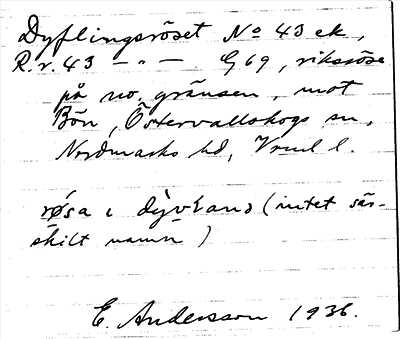 Dyflingsröset No 43 ek,
R.r. 43 — „ — G 69, riksröse
på no. gränsen, mot
Bön, Östervallskogs sn,
Nordmarks hd, Vrml l.
røsa i dyvland (intet sär-
skilt namn)
E. Andersson 1936.